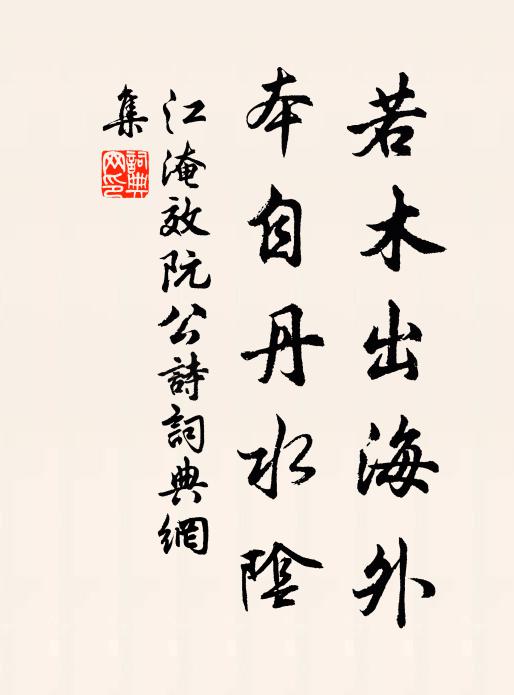 若木出海外
本自丹水陰
江淹效阮公詩詞典網
集
詞典
网印